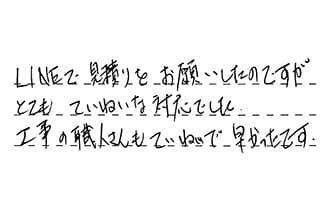 LINEで見積りをお願いしたのですが
とても ていねいな対応でした。
工事の職人さんもていねいで早かったです.